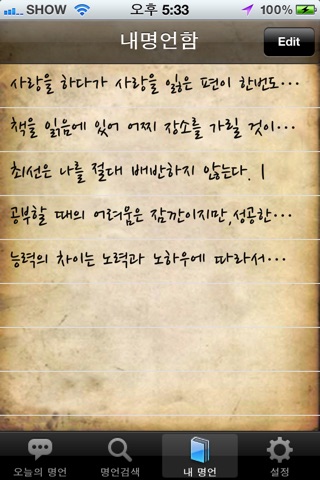 SHOW 오후 5:33 100%
내명언함 Edit
사랑을 하다가 사랑을 잃은 편이 한번도…
책을 읽음에 있어 어찌 장소를 가릴 것이…
최선은 나를 절대 배반하지 않는다. |
공부할 때의 어려움은 잠깐이지만,성공한…
능력의 차이는 노력과 노하우에 따라서…
오늘의 명언 명언검색 내 명언 설정